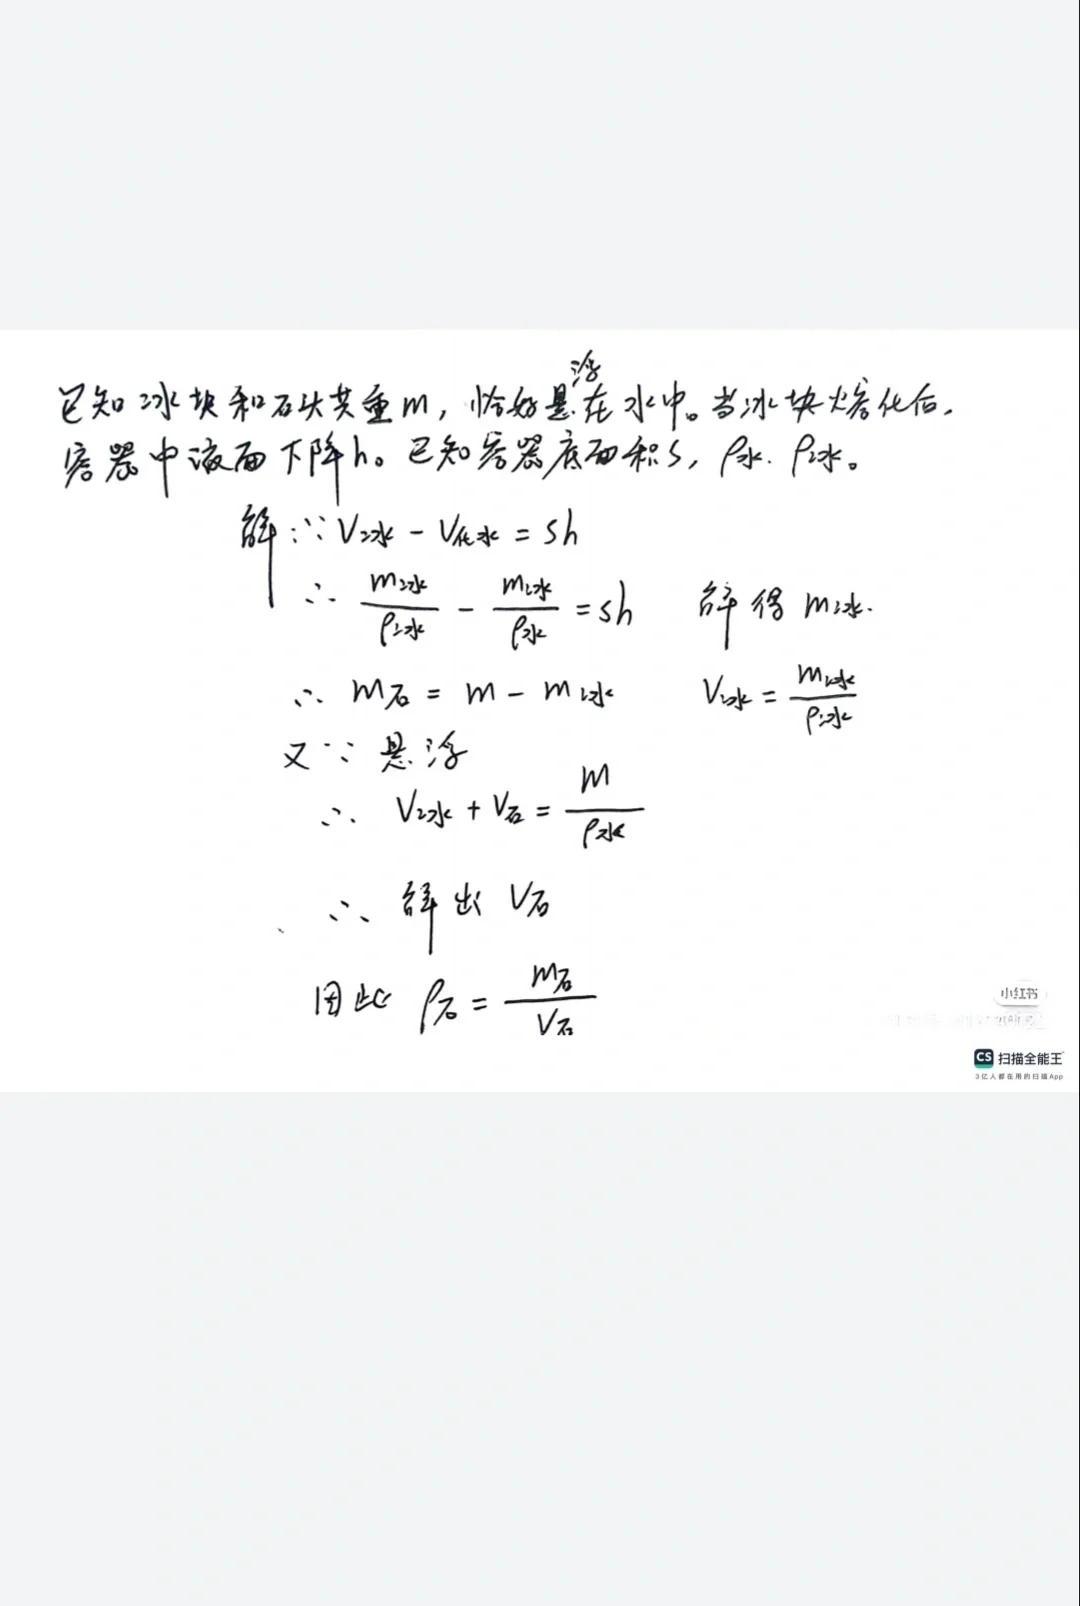 已知冰块和石头共重m,恰好悬浮在水中。当冰块熔化后,
容器中液面下降h。已知容器底面积S,ρ水.ρ冰。
解:∵V冰-V化水=Sh
∴ m冰/ρ冰 - m冰/ρ水 = Sh 解得m冰.
∴ m石=m-m冰 V冰=m冰/ρ冰
又∵悬浮
∴ V冰+V石=m/ρ水
∴ 解出V石
因此 ρ石=m石/V石
小红书
CS 扫描全能王
3亿人都在用的扫描App